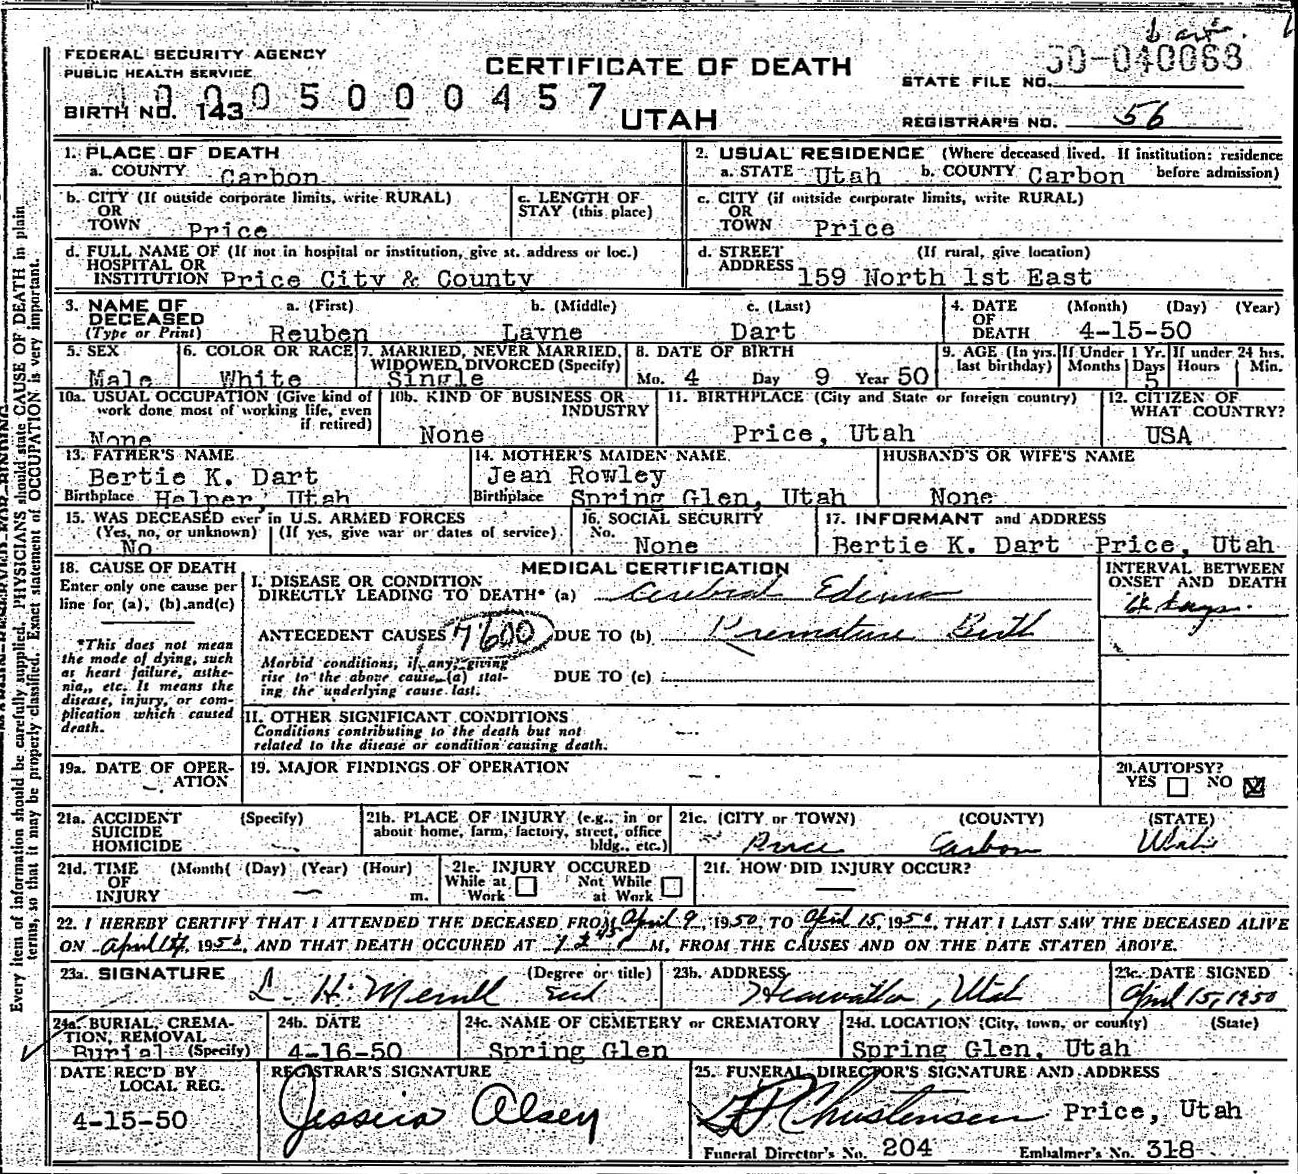 FEDERAL SECURITY AGENCY
PUBLIC HEALTH SERVICE
CERTIFICATE OF DEATH
UTAH
50-040068
STATE FILE NO.
BIRTH NO. 143
0005000457
REGISTRAR'S NO. 56
1. PLACE OF DEATH
a. COUNTY Carbon
2. USUAL RESIDENCE (Where deceased lived. If institution: residence before admission)
a. STATE Utah b. COUNTY Carbon
b. CITY (If outside corporate limits, write RURAL)
OR
TOWN Price
c. LENGTH OF
STAY (this place)
c. CITY (if outside corporate limits, write RURAL)
OR
TOWN Price
d. FULL NAME OF (If not in hospital or institution, give st. address or loc.)
HOSPITAL OR
INSTITUTION Price City & County
d. STREET (If rural, give location)
ADDRESS 159 North 1st East
3. NAME OF DECEASED (Type or Print)
a. (First) b. (Middle) c. (Last)
Reuben Layne Dart
4. DATE OF DEATH (Month) (Day) (Year)
4-15-50
5. SEX
Male
6. COLOR OR RACE
White
7. MARRIED, NEVER MARRIED, WIDOWED, DIVORCED (Specify)
Single
8. DATE OF BIRTH
Mo. 4 Day 9 Year 50
9. AGE (In yrs. last birthday)
If Under 1 Yr. Months Days 5
If under 24 hrs. Hours Min.
10a. USUAL OCCUPATION (Give kind of work done most of working life, even if retired)
None
10b. KIND OF BUSINESS OR INDUSTRY
None
11. BIRTHPLACE (City and State or foreign country)
Price, Utah
12. CITIZEN OF WHAT COUNTRY?
USA
13. FATHER'S NAME
Bertie K. Dart
Birthplace Helper, Utah
14. MOTHER'S MAIDEN NAME
Jean Rowley
Birthplace Spring Glen, Utah
HUSBAND'S OR WIFE'S NAME
None
15. WAS DECEASED ever in U.S. ARMED FORCES
(Yes, no, or unknown) (If yes, give war or dates of service)
No
16. SOCIAL SECURITY
No. None
17. INFORMANT and ADDRESS
Bertie K. Dart Price, Utah
18. CAUSE OF DEATH
Enter only one cause per line for (a), (b), and (c)
*This does not mean the mode of dying, such as heart failure, asthenia, etc. It means the disease, injury, or complication which caused death.
MEDICAL CERTIFICATION
I. DISEASE OR CONDITION
DIRECTLY LEADING TO DEATH* (a) Cerebral Edema
ANTECEDENT CAUSES 7600 DUE TO (b) Premature Birth
Morbid conditions, if any, giving rise to the above cause (a) stating the underlying cause last.
DUE TO (c)
INTERVAL BETWEEN ONSET AND DEATH
days.
II. OTHER SIGNIFICANT CONDITIONS
Conditions contributing to the death but not related to the disease or condition causing death.
19a. DATE OF OPERATION
19. MAJOR FINDINGS OF OPERATION
20. AUTOPSY?
YES NO
21a. ACCIDENT SUICIDE HOMICIDE (Specify)
21b. PLACE OF INJURY (e.g., in or about home, farm, factory, street, office bldg., etc.)
21c. (CITY or TOWN) (COUNTY) (STATE)
Price Carbon Utah
21d. TIME OF INJURY (Month) (Day) (Year) (Hour) m.
21e. INJURY OCCURED
While at Work Not While at Work
21f. HOW DID INJURY OCCUR?
22. I HEREBY CERTIFY THAT I ATTENDED THE DECEASED FROM April 9, 1950, TO April 15, 1950, THAT I LAST SAW THE DECEASED ALIVE
ON April 1950, AND THAT DEATH OCCURED AT M., FROM THE CAUSES AND ON THE DATE STATED ABOVE.
23a. SIGNATURE (Degree or title)
L. H. Merrill
23b. ADDRESS
Hiawatha, Utah
23c. DATE SIGNED
April 15, 1950
24a. BURIAL, CREMATION, REMOVAL (Specify)
Burial
24b. DATE
4-16-50
24c. NAME OF CEMETERY or CREMATORY
Spring Glen
24d. LOCATION (City, town, or county) (State)
Spring Glen, Utah
DATE REC'D BY LOCAL REG.
4-15-50
REGISTRAR'S SIGNATURE
Jessica Olsey
25. FUNERAL DIRECTOR'S SIGNATURE AND ADDRESS
Christensen Price, Utah
Funeral Director's No. 204 Embalmer's No. 318
Every item of information should be carefully supplied. PHYSICIANS should state CAUSE OF DEATH in plain
terms, so that it may be properly classified. Exact statement of OCCUPATION is very important.